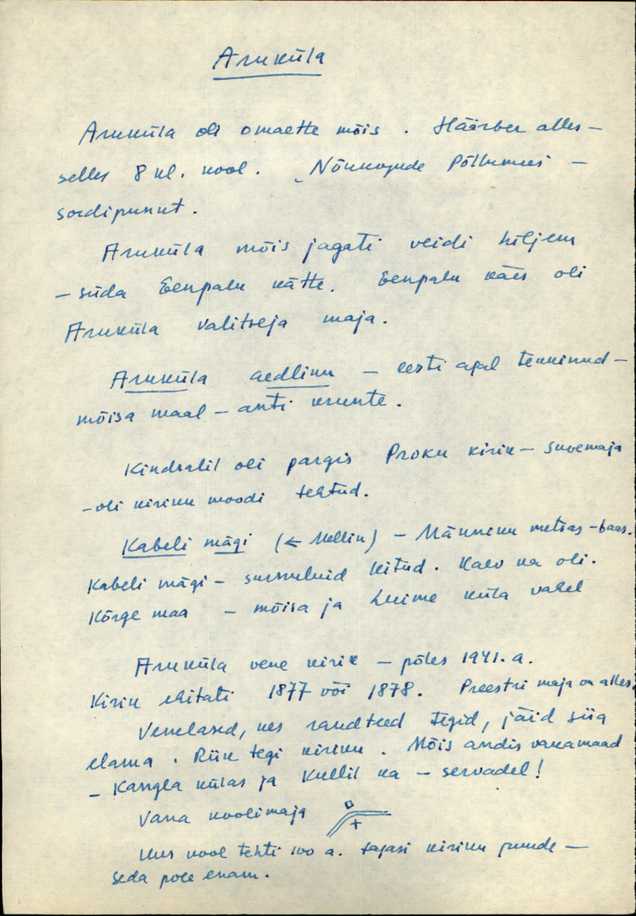 Aruküla
Aruküla oli omaette mõis. Häärber alles –
selles 8 kl. kool. Nõukogude Põllumees –
soodipunkt.
Aruküla mõis jagati veidi hiljem
– süda Eenpalu kätte. Eenpalu käes oli
Aruküla valitseja maja.
Aruküla aedlinn – eesti ajal tekkinud –
mõisa maal – anti krunte.
Kindralil oli pargis Proku kirik – suvemaja
– oli kiriku moodi tehtud.
Kabeli mägi (← Mellin) – Männiku metsas – baas.
Kabeli mägi – surnuluid leitud. Kaev ka oli.
Kõrge maa – mõisa ja küla vahel
Aruküla vene kirik – põles 1941. a.
Kirik ehitati 1877 või 1878. Preestri maja on alles.
Venelased, kes raudteed tegid, jäid siia
elama. Riik tegi kiriku. Mõis andis vakamaad
– Kangla külas ja Kullil ka – servadel!
Vana koolimaja
Uus kool tehti 100 a. tagasi kiriku juurde –
seda pole enam.